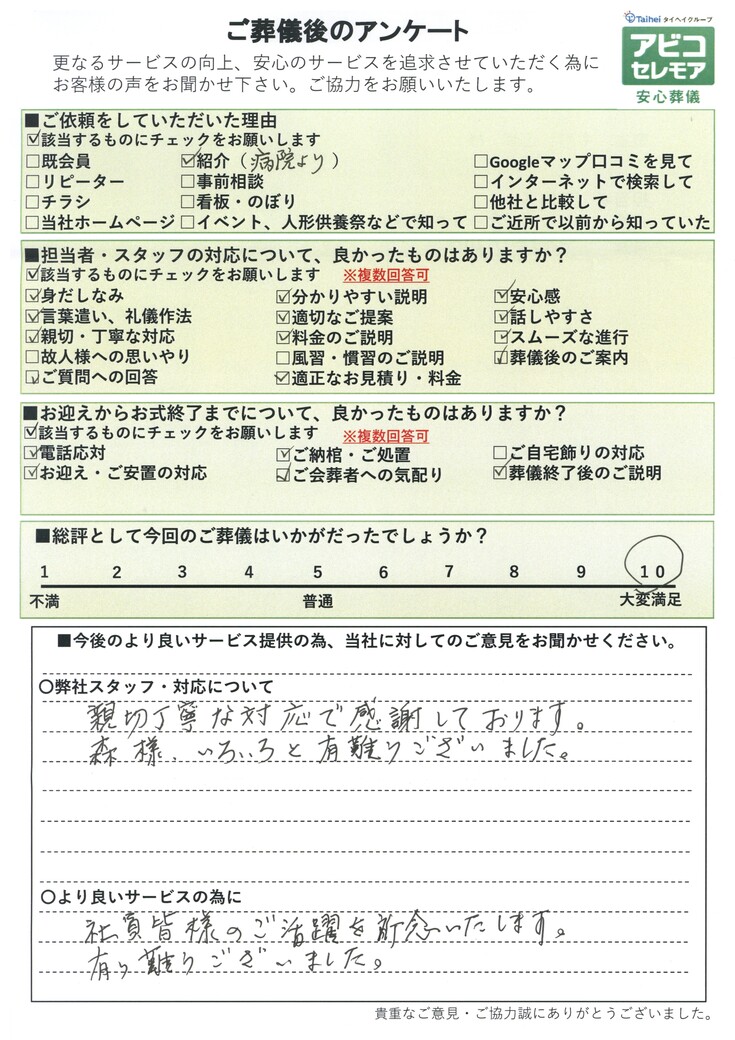 ご葬儀後のアンケート
Taihei タイヘイグループ
アビコ
セレモア
安心葬儀
更なるサービスの向上、安心のサービスを追求させていただく為に
お客様の声をお聞かせ下さい。ご協力をお願いいたします。
■ご依頼をしていただいた理由
☑該当するものにチェックをお願いします
☐既会員 ☑紹介（病院より） ☐Googleマップ口コミを見て
☐リピーター ☐事前相談 ☐インターネットで検索して
☐チラシ ☐看板・のぼり ☐他社と比較して
☐当社ホームページ ☐イベント、人形供養祭などで知って ☐ご近所で以前から知っていた
■担当者・スタッフの対応について、良かったものはありますか？
☑該当するものにチェックをお願いします ※複数回答可
☑身だしなみ ☑分かりやすい説明 ☑安心感
☑言葉遣い、礼儀作法 ☑適切なご提案 ☑話しやすさ
☑親切・丁寧な対応 ☑料金のご説明 ☑スムーズな進行
☐故人様への思いやり ☐風習・慣習のご説明 ☑葬儀後のご案内
☑ご質問への回答 ☑適正なお見積り・料金
■お迎えからお式終了までについて、良かったものはありますか？
☑該当するものにチェックをお願いします ※複数回答可
☑電話応対 ☑ご納棺・ご処置 ☐ご自宅飾りの対応
☑お迎え・ご安置の対応 ☑ご会葬者への気配り ☑葬儀終了後のご説明
■総評として今回のご葬儀はいかがだったでしょうか？
1 2 3 4 5 6 7 8 9 10
不満 普通 大変満足
■今後のより良いサービス提供の為、当社に対してのご意見をお聞かせください。
〇弊社スタッフ・対応について
親切丁寧な対応で感謝しております。
森様、いろいろと有難うございました。
〇より良いサービスの為に
社員皆様のご活躍を祈念いたします。
有り難うございました。
貴重なご意見・ご協力誠にありがとうございました。